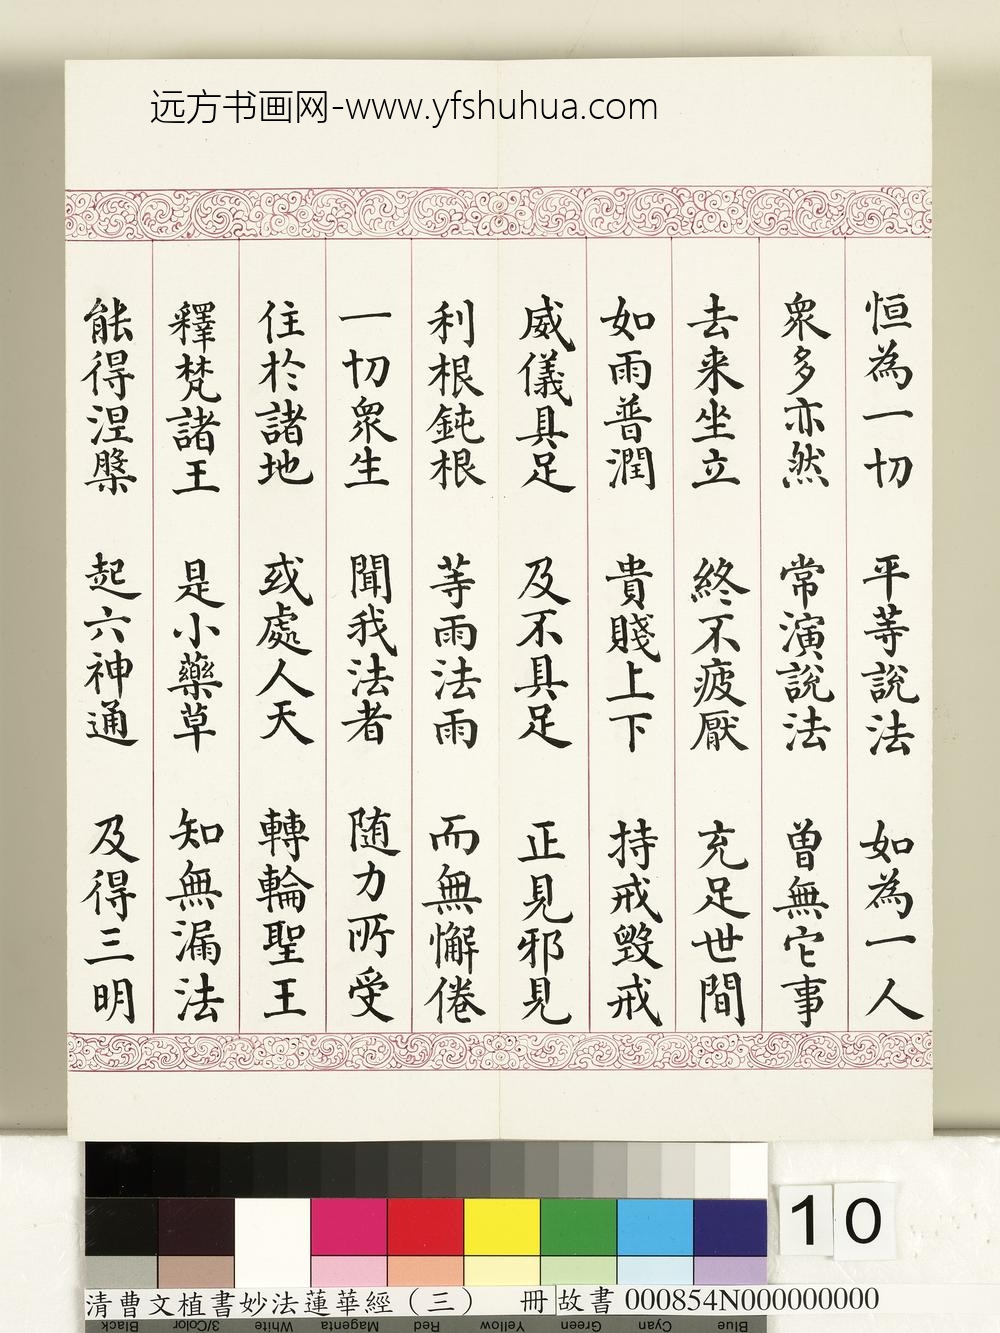 远方书画网-www.yfshuhua.com
恒為一切 平等說法 如為一人
衆多亦然 常演說法 曾無它事
去来坐立 終不疲厭 充足世間
如雨普潤 貴賤上下 持戒毀戒
威儀具足 及不具足 正見邪見
利根鈍根 等雨法雨 而無懈倦
一切衆生 聞我法者 随力所受
住於諸地 或處人天 轉輪聖王
釋梵諸王 是小藥草 知無漏法
能得涅槃 起六神通 及得三明
10
清曹文植書妙法蓮華經（三） 冊 故書 000854N000000000
Black 3/Color White Magenta Red Yellow Green Cyan Blue